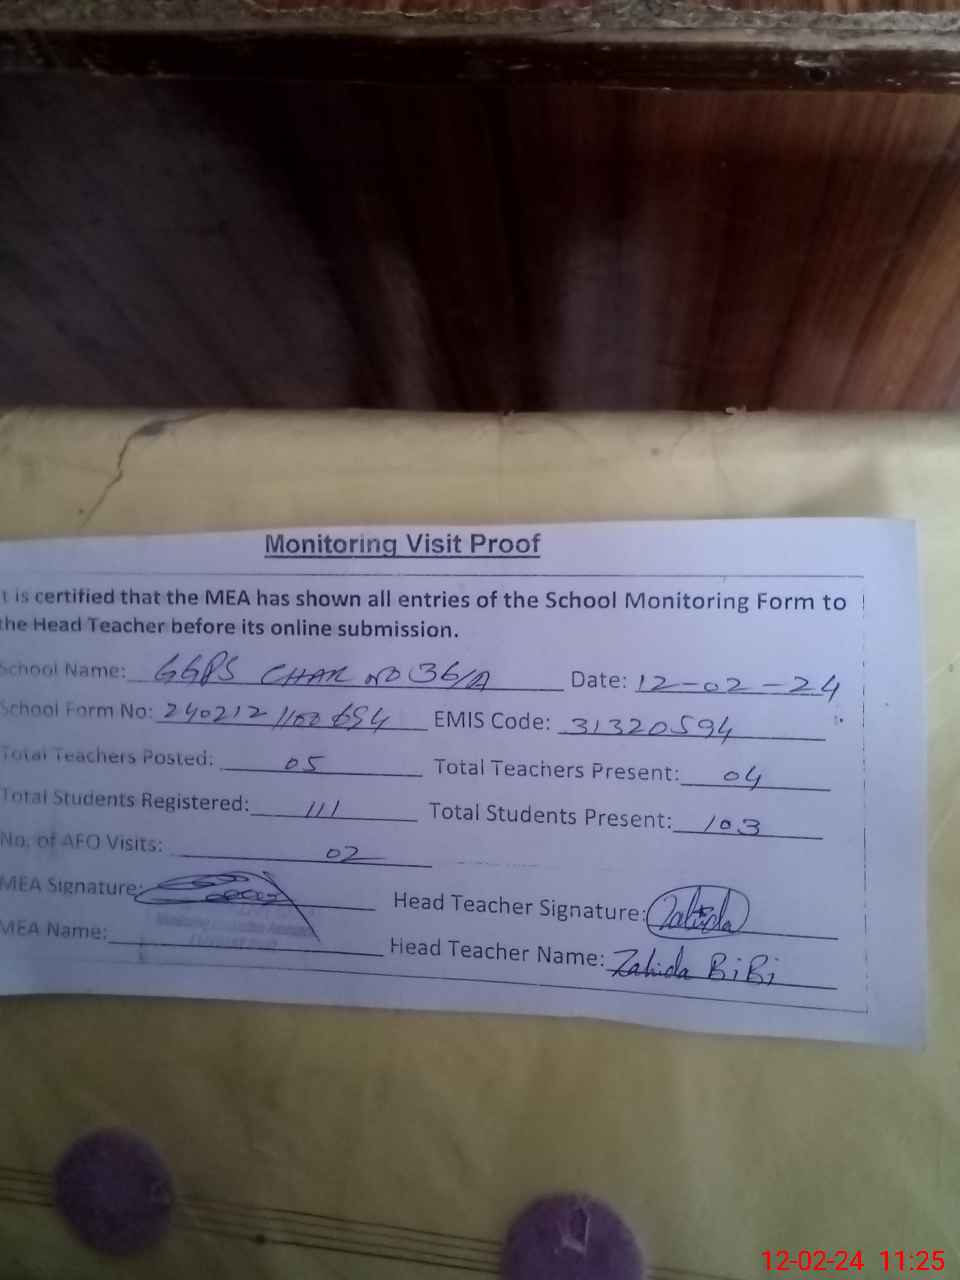 Monitoring Visit Proof
t is certified that the MEA has shown all entries of the School Monitoring Form to
the Head Teacher before its online submission.
School Name: GGPS CHAK NO 36/A Date: 12-02-24
School Form No: 240212 1102654 EMIS Code: 31320594
Total Teachers Posted: 05 Total Teachers Present: 04
Total Students Registered: 111 Total Students Present: 103
No. of AEO Visits: 02
MEA Signature: Head Teacher Signature: Zahida
MEA Name: Head Teacher Name: Zahida BiBi
12-02-24 11:25